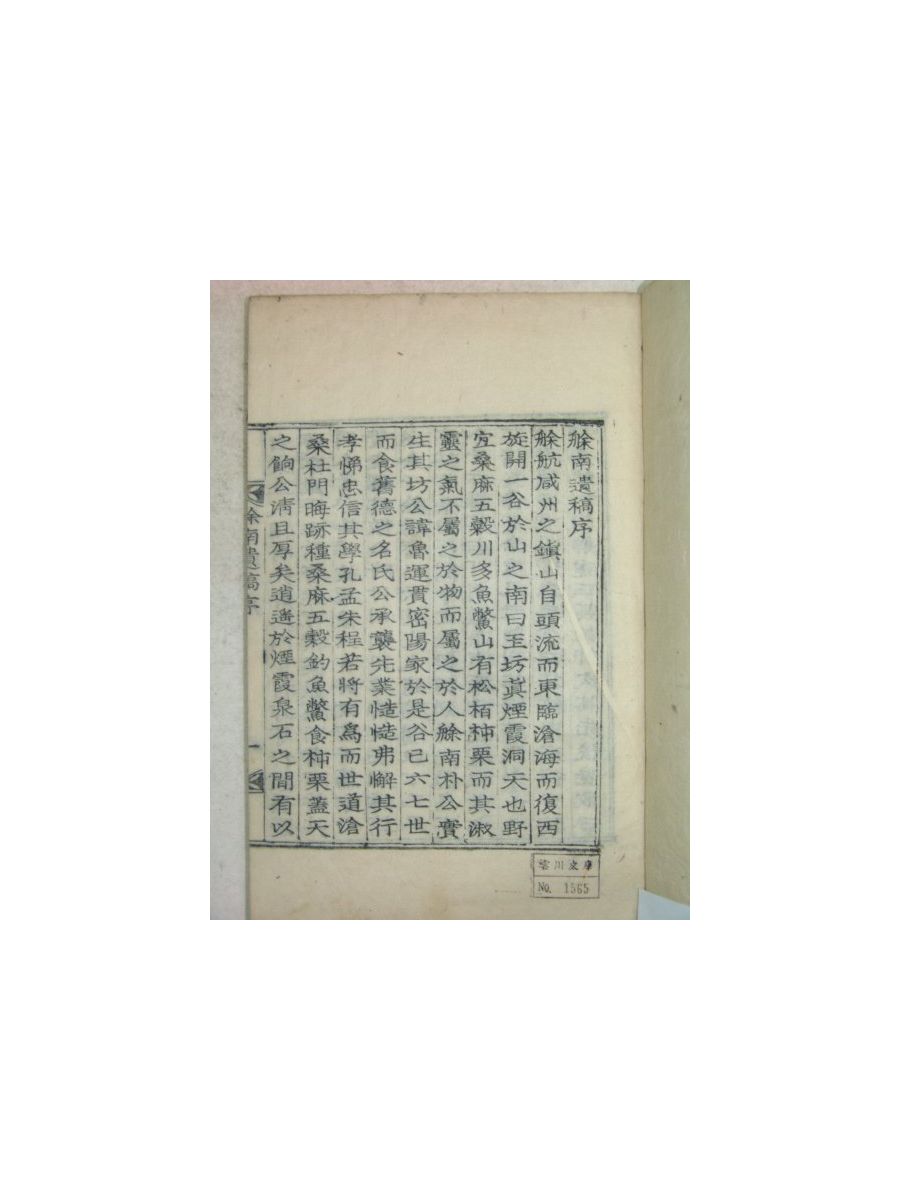 艅南遺稿序
艅航咸州之鎭山自頭流而東臨滄海而復西
旋開一谷於山之南曰玉坊眞煙霞洞天也野
宜桑麻五穀川多魚鱉山有松栢柿栗而其淑
靈之氣不屬之於物而屬之於人艅南朴公實
生其坊公諱魯運貫密陽家於是谷已六七世
而食舊德之名氏公承襲先業慥慥弗懈其行
孝悌忠信其學孔孟朱程若將有爲而世道滄
桑杜門晦跡種桑麻五穀釣魚鱉食柿栗蓋天
之餉公淸且厚矣逍遙於煙霞泉石之間有以
艅南遺稿序
一
川文庫
No. 1565